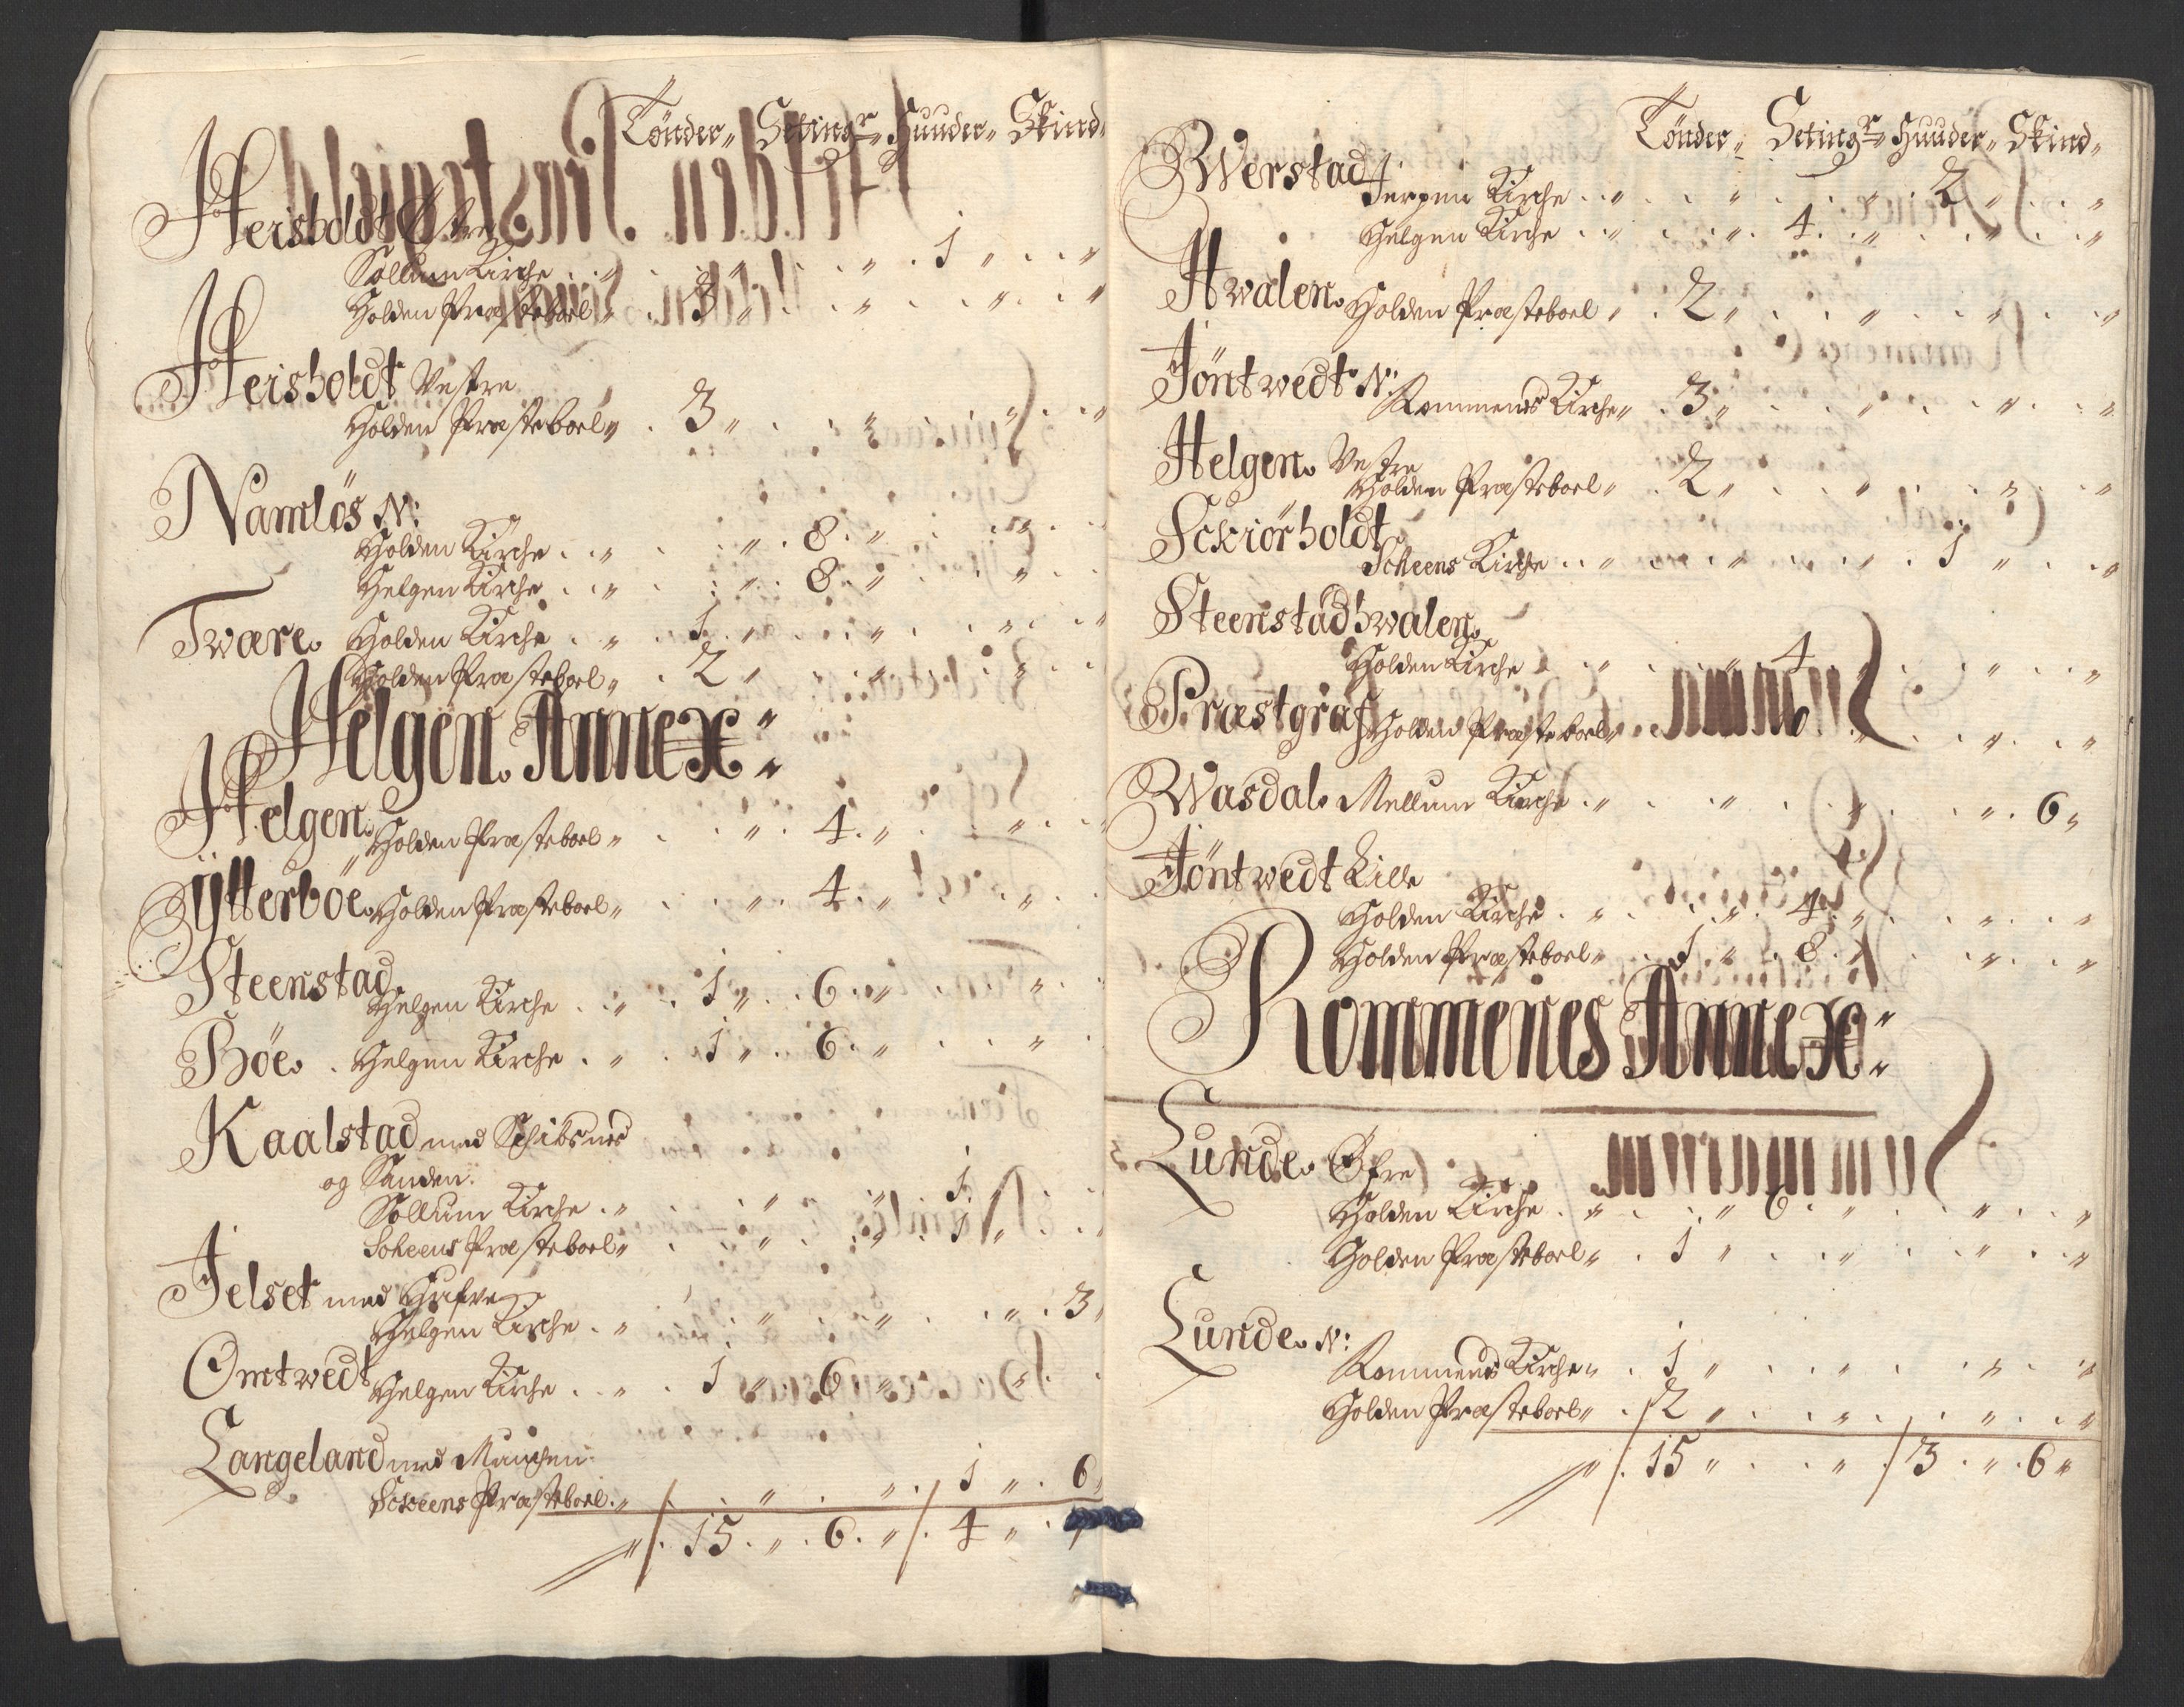 Tönder „ Setingr „ Huuder „ Skind „
Heisholdt Østre
Sollum Kirche . . „ . . „ . . „ . 1 „ . . „
Holden Præsteboel „ . 3 „ . . „ . . „ . . „
Heisholdt Vestre
Holden Præsteboel „ . 3 „ . . „ . . „ . . „
Namløs N:
Holden Kirche . . „ . . „ . 8 . „ . . „ . .
Helgen Kirche . . „ . . „ . 8 . „ . . „ . .
Tware. Holden Kirche . „ . 1 . „ . . „ . . „ . . „
Holden Præsteboel „ . 2 „ . . „ . . „ . .
Helgen Annex :
Helgen. Holden Præsteboel „ . . „ . 4 . „ . . „ . . „
Ÿtterböe. Holden Præsteboel „ . . „ . 4 . „ . . „ . .
Steenstad
Helgen Kirche . . „ . 1 „ . 6 . „ . . „ . .
Böe. . Helgen Kirche . „ . 1 „ . 6 . „ . . „ .
Kaalstad med Schibsnes
og Sanden.
Sollum Kirche . „ . . „ . . „ . 1 . „ . .
Scheens Præsteboel „ . . „ . . „ . 1 „ . .
Jelset med
Helgen Kirche . „ . . „ . . „ . . „ . 3 „
Omtwedt
Helgen Kirche . . „ . 1 „ . 6 „ . . „ . .
Langeland med
Scheens Præsteboel . „ . . „ . . „ . 1 „ . 6 „
„ /. 15 . „ . 6 . „ /. 4 „ .
Tönder „ Setingr „ Huuder „ Skind „
Werstad
Jerpen Kirche . . „ . . „ . . „ . 2 „ . . „
Helgen Kirche . . „ . . „ . 4 . „ . . „ . . „
Hwalen. Holden Præsteboel „ . 2 „ . . „ . . „ . . „
Jöntwedt N:
Rommenes Kirche „ . 3 „ . . „ . . „ . . „
Helgen. Vestre
Holden Præsteboel „ . 2 „ . . „ . . „ . . „
Sckiörholdt
Scheens Kirche . . „ . . „ . . „ . 1 „ . . „
Steenstadhwalen.
Holden Kirche . . „ . . „ . 4 . „ . . „ . . „
Præstgraf
Holden Præsteboel „ . . „ . 6 . „ . . „ . . „
Wasdal. Mellum Kirche . „ . . „ . . „ . . „ . 6 „
Jöntwedt Lille
Holden Kirche . „ . . „ . 4 . „ . . „ . . „
Holden Præsteboel „ . 1 „ . 8 . „ . . „ . . „
Rommenes Annex :
Lunde. Øfre
Holden Kirche . „ . . „ 6 . „ . . „ . . „
Holden Præsteboel „ . 1 „ . . „ . . „ . . „
Lunde. N:
Rommenes Kirche „ . 1 „ . . „ . . „ . . „
Holden Præsteboel „ . 2 „ . . „ . . „ . . „
„ /. 15 „ . . „ . /3 . „ . 6 „